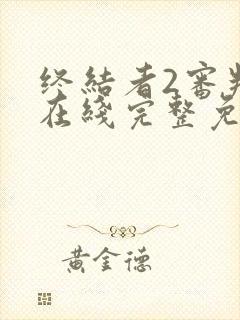 终結者2審判
在綫完整免
黄金德